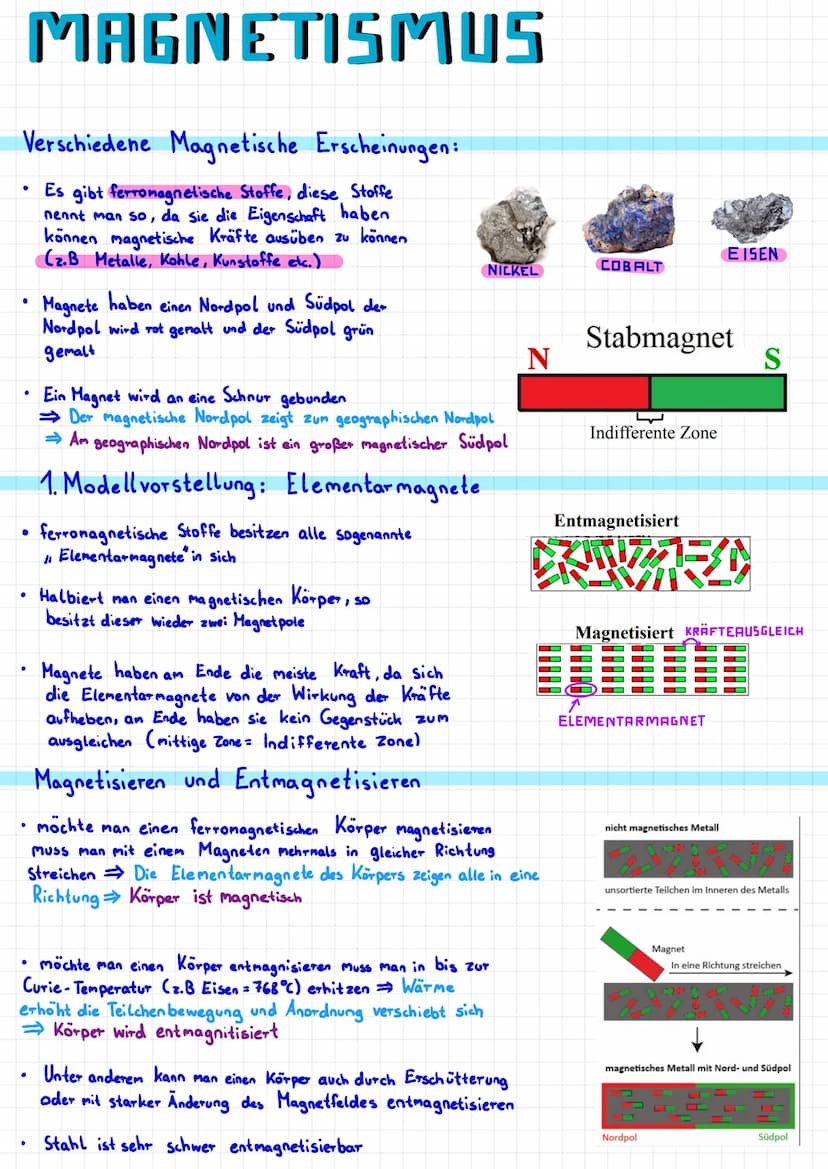 MAGNETISMUS
Verschiedene Magnetische Erscheinungen:
• Es gibt ferromagnetische Stoffe, diese Stoffe
nennt man so, da sie die Eigenschaft haben
können magnetische Kräfte ausüben zu können
(z.B Metalle, Kohle, Kunstoffe etc.)
NICKEL
COBALT
EISEN
• Magnete haben einen Nordpol und Südpol der
Nordpol wird rot gemalt und der Südpol grün
gemalt
Stabmagnet
N S
Indifferente Zone
• Ein Magnet wird an eine Schnur gebunden
⇒ Der magnetische Nordpol zeigt zum geographischen Nordpol
⇒ Am geographischen Nordpol ist ein großer magnetischer Südpol
1. Modellvorstellung: Elementarmagnete
• ferromagnetische Stoffe besitzen alle sogenannte
„Elementarmagnete" in sich
• Halbiert man einen magnetischen Körper, so
besitzt dieser wieder zwei Magnetpole
• Magnete haben am Ende die meiste Kraft, da sich
die Elementarmagnete von der Wirkung der Kräfte
aufheben, am Ende haben sie kein Gegenstück zum
ausgleichen (mittige Zone = Indifferente Zone)
Entmagnetisiert
Magnetisiert
KRÄFTEAUSGLEICH
ELEMENTARMAGNET
Magnetisieren und Entmagnetisieren
• möchte man einen ferromagnetischen Körper magnetisieren
muss man mit einem Magneten mehrmals in gleicher Richtung
Streichen ⇒ Die Elementarmagnete des Körpers zeigen alle in eine
Richtung ⇒ Körper ist magnetisch
• möchte man einen Körper entmagnisieren muss man in bis zur
Curie-Temperatur (z.B Eisen = 768°C) erhitzen ⇒ Wärme
erhöht die Teilchenbewegung und Anordnung verschiebt sich
⇒ Körper wird entmagnitisiert
• Unter anderem kann man einen Körper auch durch Erschütterung
oder mit starker Änderung des Magnetfeldes entmagnetisieren
• Stahl ist sehr schwer entmagnetisierbar
nicht magnetisches Metall
unsortierte Teilchen im Inneren des Metalls
Magnet
In eine Richtung streichen
magnetisches Metall mit Nord- und Südpol
Nordpol Südpol